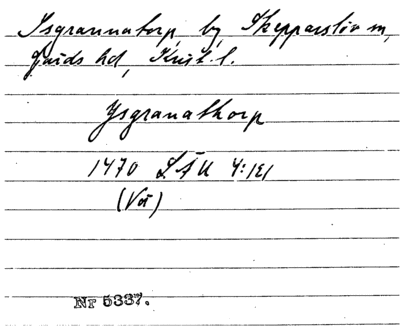 Isgrannatorp, by, Skepparslöv sn,
Gärds hd, Krist. l.
Ysgranathorp
1470 LÄU 4:121
(Vä)
Nr 5337.